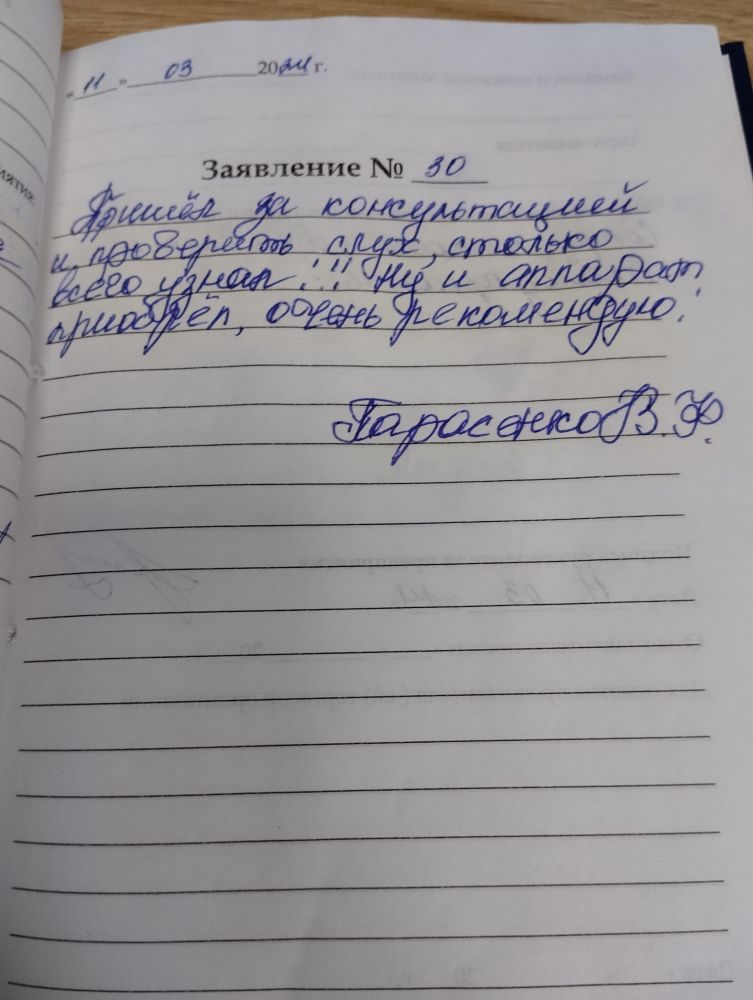 « 11 » 03 2024 г.
Заявление № 30
Пришёл за консультацией
и проверить слух, столько
всего узнал!!! Ну и аппарат
приобрёл, очень рекомендую!
Тарасенко В.Ф.